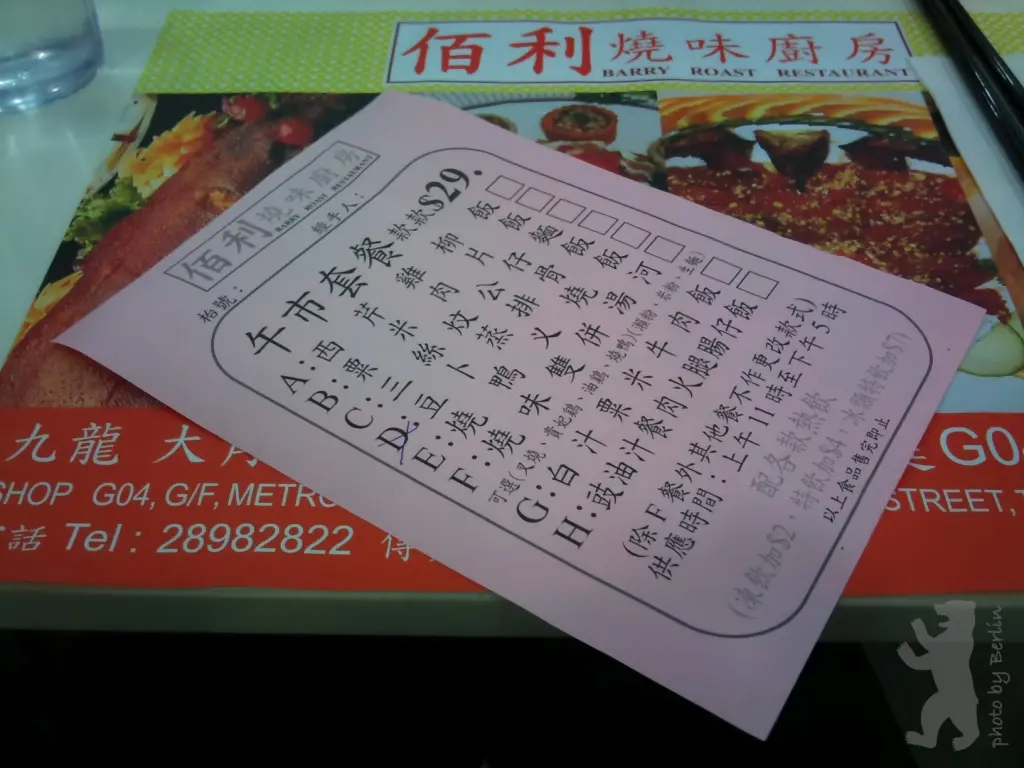 佰利燒味廚房
BARRY ROAST RESTAURANT
佰利燒味廚房
BARRY ROAST RESTAURANT
枱號：
經手人：
午市套餐 款款$29.
A：西芹雞柳飯
B：粟米肉片飯
C：三絲炆公仔麵
D：豆卜蒸排骨飯
E：燒鴨叉燒飯
F：燒味雙併湯河
可選(叉燒、貴妃雞、油雞、燒鴨)(瀨粉、米粉、生麵)
G：白汁粟米牛肉飯
H：豉油汁餐肉火腿腸仔飯
(除F餐外其他餐不作更改款式)
供應時間：上午11時至下午5時
配各款熱飲
(凍飲加$2、特飲加$4、冰類特飲加$7)
以上食品售完即止
九龍 大 G0
SHOP G04, G/F, METRO STREET, T
話 Tel : 28982822
photo by Berlin